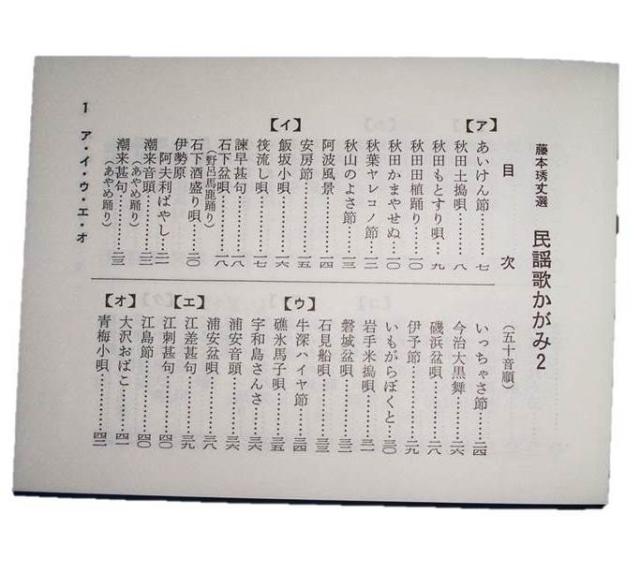 藤本琇丈選
民謡歌かがみ2
(五十音順)
目次
【ア】
あいけん節…………七
秋田土搗唄…………八
秋田もとすり唄……九
秋田田植踊り………一〇
秋田かまやせぬ……一〇
秋葉ヤレコノ節……一二
秋山のよさ節………一三
阿波風景……………一四
安房節………………一五
【イ】
飯坂小唄……………一六
筏流し唄……………一七
諫早甚句……………一八
(野呂馬鹿踊り)
石下盆唄……………一八
石下酒盛り唄………二〇
伊勢原
阿夫利ばやし…二一
潮来音頭……………二二
(あやめ踊り)
潮来甚句……………二三
(あやめ踊り)
いっちゃさ節………二四
今治大黒舞…………二六
磯浜盆唄……………二八
伊予節………………二九
いもがらぼくと……三〇
岩手米搗唄…………三一
磐城盆唄……………三二
石見船唄……………三三
【ウ】
牛深ハイヤ節………三四
碓氷馬子唄…………三五
宇和島さんさ………三六
浦安音頭……………三六
浦安盆唄……………三八
【エ】
江差甚句……………三九
江刺甚句……………四〇
江島節………………四〇
【オ】
大沢おばこ…………四一
青梅小唄……………四二
1 ア・イ・ウ・エ・オ